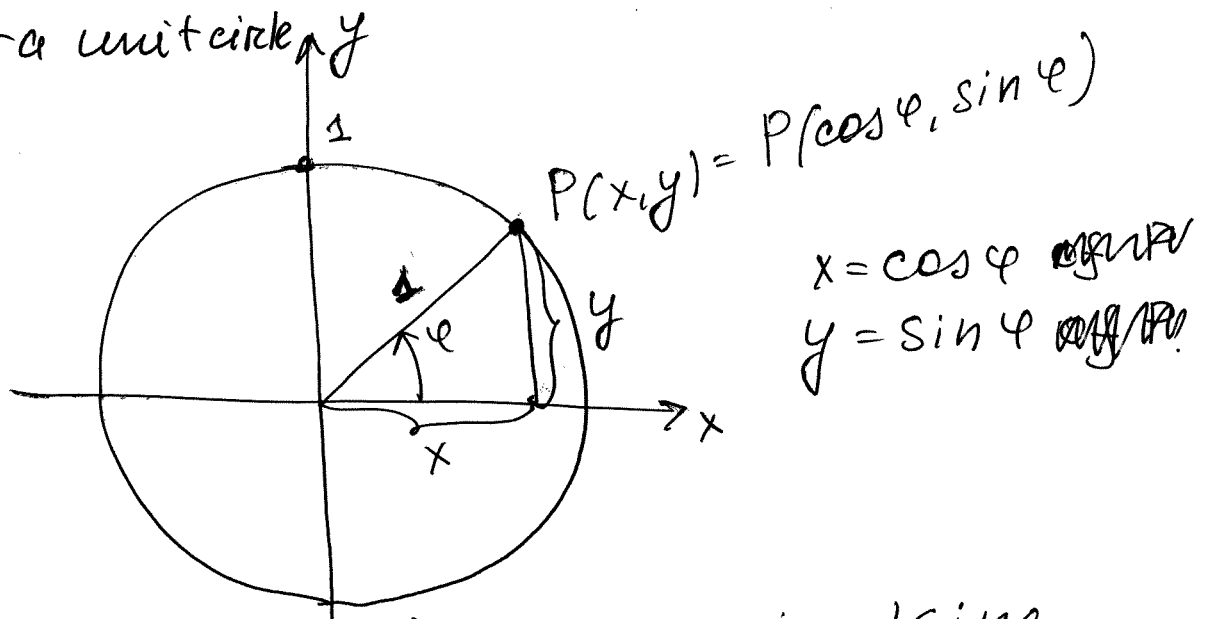 -a unit circle y
1
P(x,y) = P(cos φ, sin φ)
x = cos φ
y = sin φ
1
φ
y
x
x